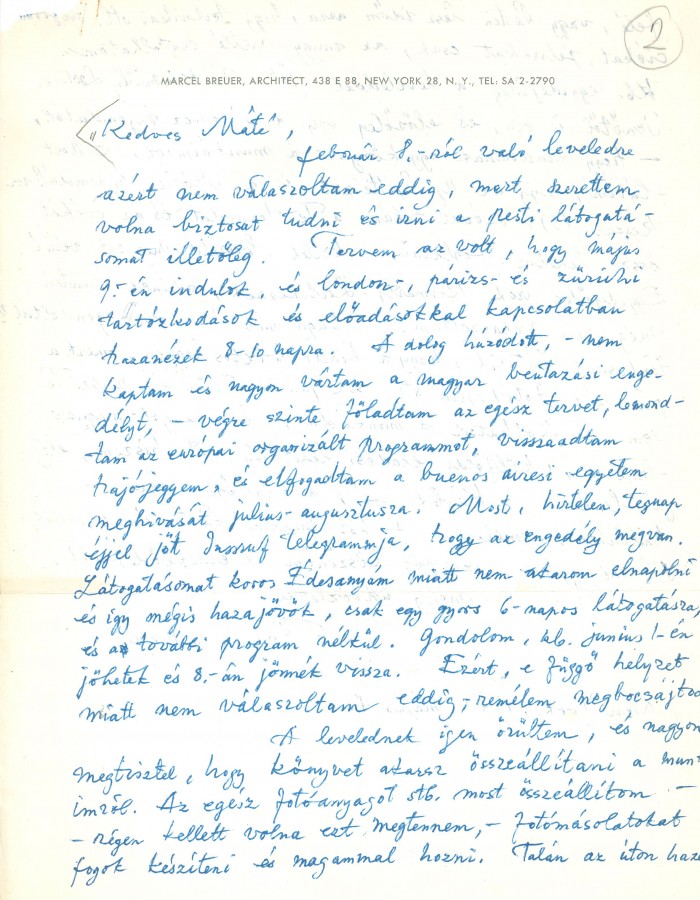 2
MARCEL BREUER, ARCHITECT, 438 E 88, NEW YORK 28, N. Y., TEL: SA 2-2790
"Kedves Máté,
február 8.-ról való leveledre
azért nem válaszoltam eddig, mert szerettem
volna biztosat tudni és irni a pesti látogatá-
somat illetőleg. Tervem az volt, hogy május
9.-én indulok, és london-, párizs- és zürichi
tartózkodások és előadásokkal kapcsolatban
hazanézek 8-10 napra. A dolog húzódott, - nem
kaptam és nagyon vártam a magyar beutazási enge-
délyt, - végre szinte föladtam az egész tervet, lemond-
tam az európai organizált programmot, visszaadtam
hajójegyem, és elfogadtam a buenos airesi egyetem
meghivását julius-augusztusra. Most, hirtelen, tegnap
éjjel jött Jusssuf telegrammja, hogy az engedély megvan.
Látogatásomat koros Édesanyám miatt nem akarom elnapolni
és igy mégis hazajövök, csak egy gyors 6-napos látogatásra,
és további program nélkül. Gondolom, kb. junius 1-én
jöhetek és 8.-án jönnék vissza. Ezért, e függő helyzet
miatt nem válaszoltam eddig, - remélem megbocsájtod
A levelednek igen örültem, és nagyon
megtisztel, hogy könyvet akarsz összeállítani a mun-
imról. Az egész fotóanyagot stb. most összeállítom -
- régen kellett volna ezt megtennem, - fotómásolatokat
fogok készíteni és magammal hozni. Talán az úton haza